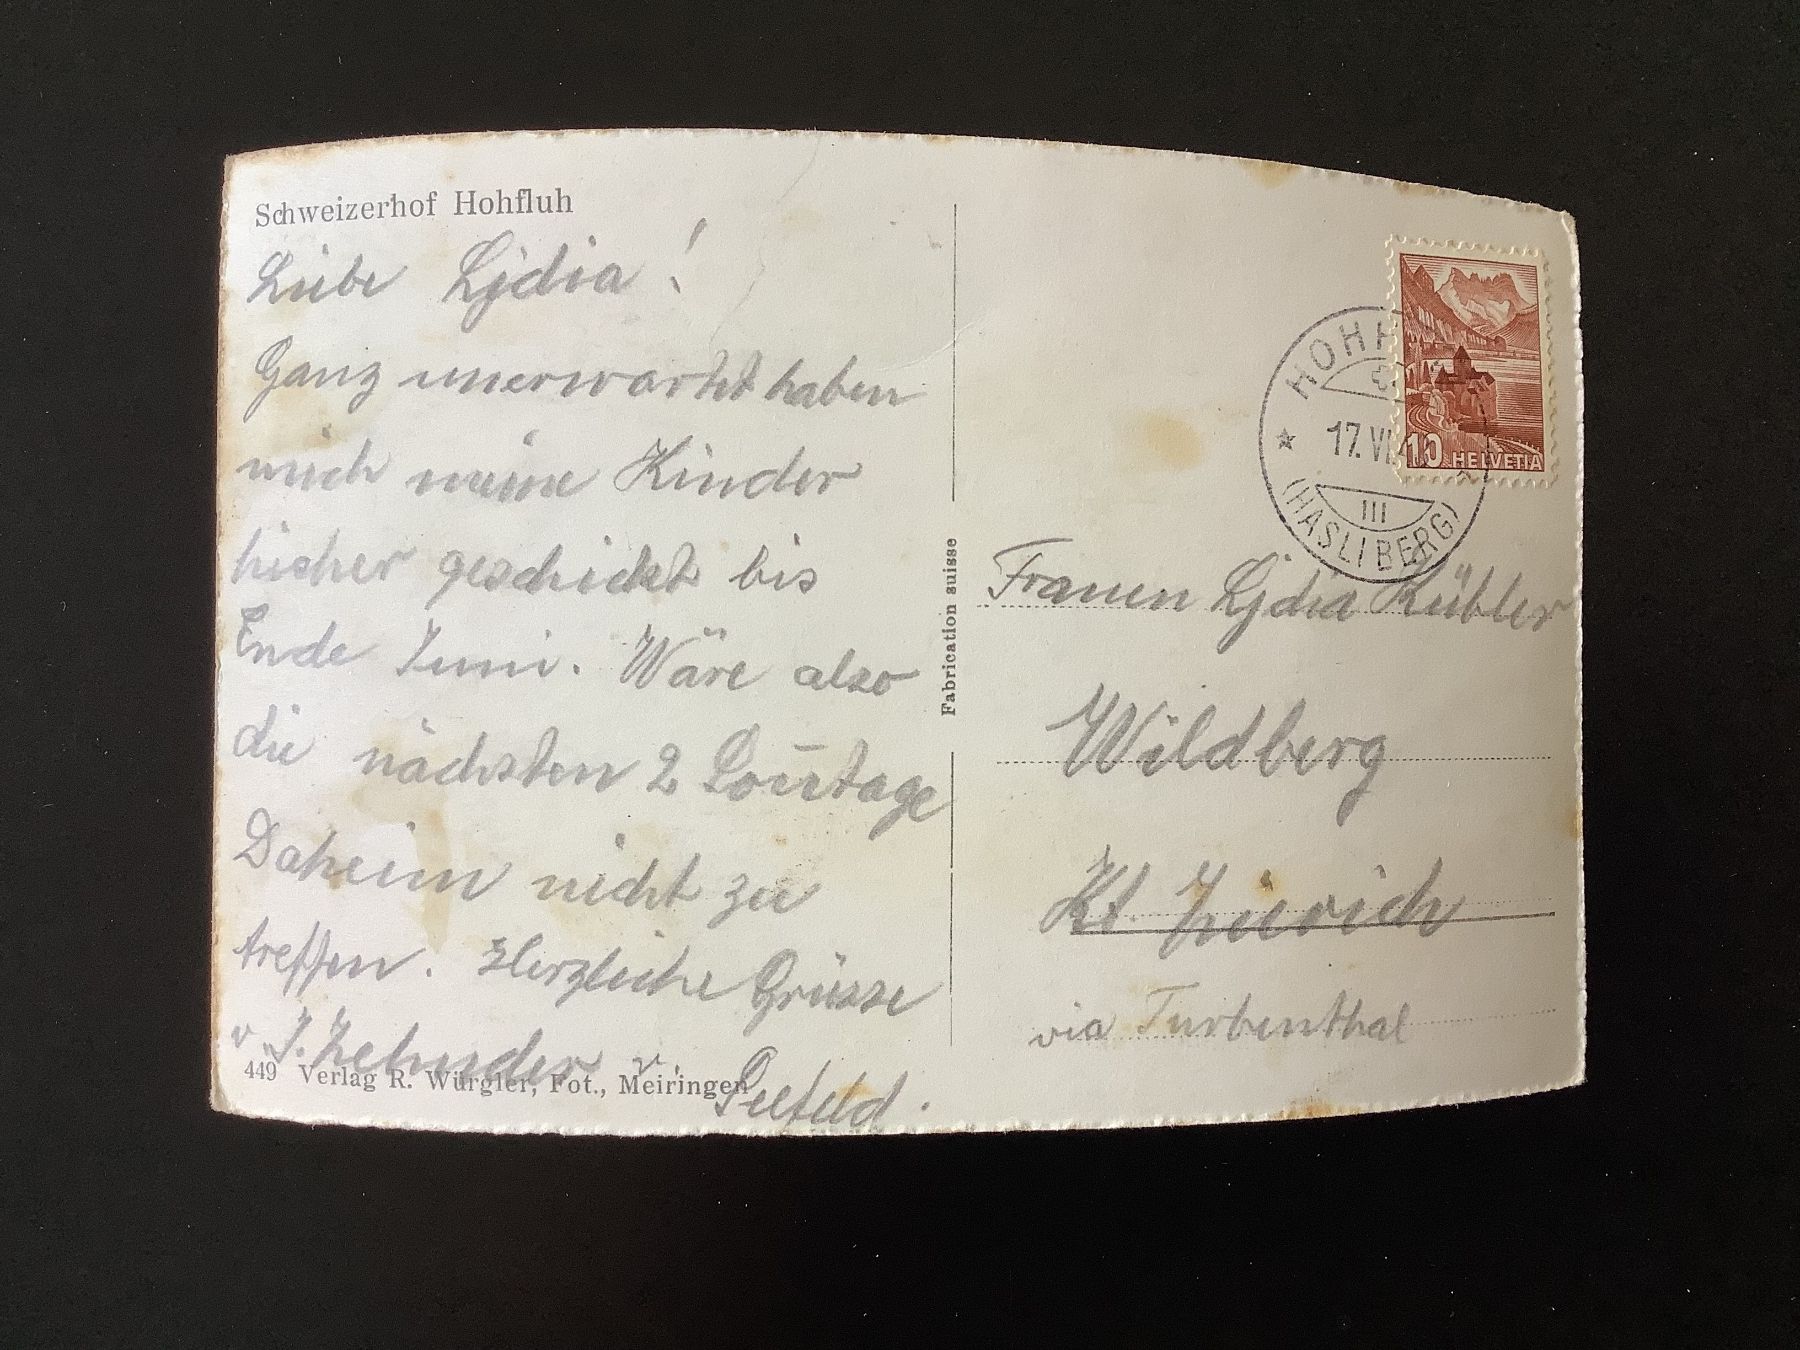 Schweizerhof Hohfluh
Liebe Lydia!
Ganz unerwartet haben
mich meine Kinder
hieher geschickt bis
Ende Juni. Wäre also
die nächsten 2 Soñtage
Daheim nicht zu
treffen. Herzliche Grüsse
v. J. Zehnder v. Seefeld.
449 Verlag R. Würgler, Fot., Meiringen
Fabrication suisse
HOHF
17. VI
III
(HASLIBERG)
10 HELVETIA
Frauen Lydia Kübler
Wildberg
Kt. Zürich
via Turbenthal